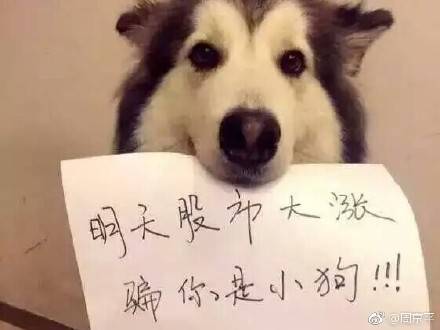 明天股市大涨
骗你是小狗!!!
@周京平